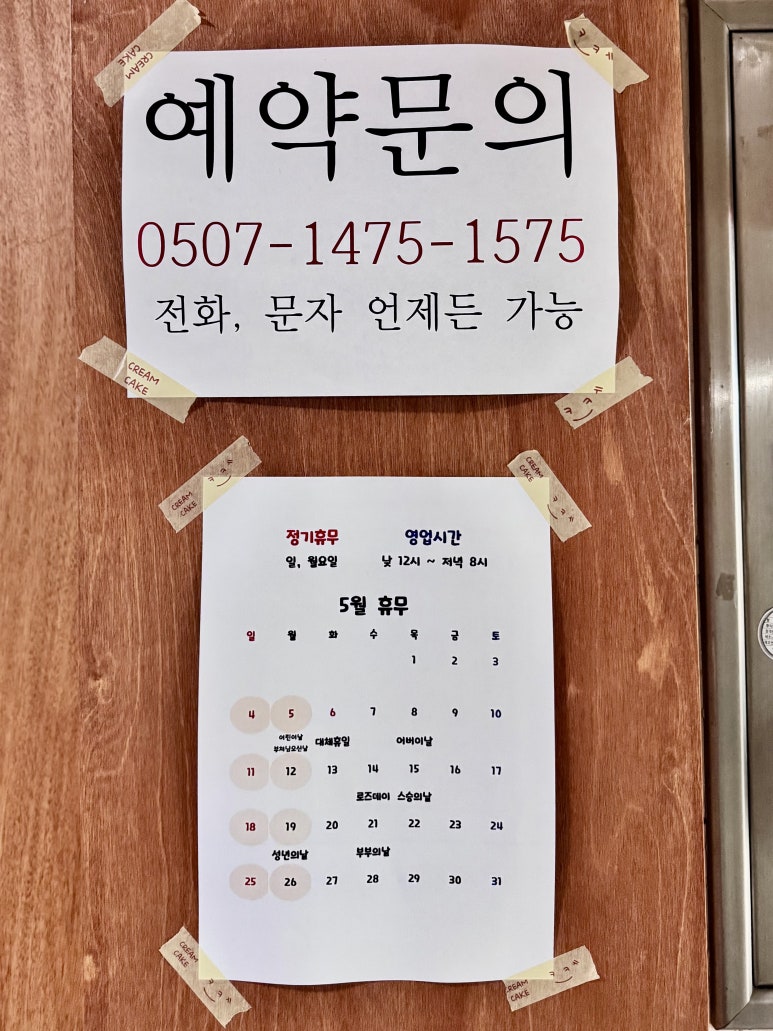 CREAM CAKE
ㅋㅋㅔ
예약문의
0507-1475-1575
전화, 문자 언제든 가능
CREAM CAKE
ㅋㅋㅔ
CREAM CAKE ㅋㅋㅔ
CREAM CAKE ㅋㅋㅔ
정기휴무 영업시간
일, 월요일 낮 12시 ~ 저녁 8시
5월 휴무
일 월 화 수 목 금 토
1 2 3
4 5 6 7 8 9 10
어린이날
부처님오신날 대체휴일 어버이날
11 12 13 14 15 16 17
로즈데이 스승의날
18 19 20 21 22 23 24
성년의날 부부의날
25 26 27 28 29 30 31
CREAM CAKE ㅋㅋㅔ
CREAM CAKE ㅋㅋㅔ